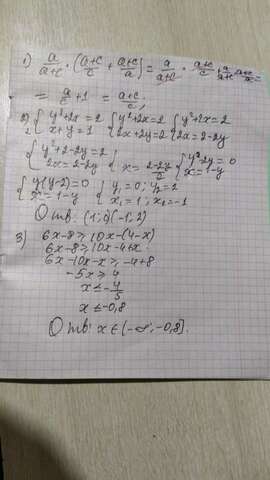 1) a/(a+c) · ((a+c)/c + (a+c)/a) = a/(a+c) · (a+c)/c + a/(a+c) · (a+c)/a =
= a/c + 1 = (a+c)/c;
2) { y²+2x=2 { y²+2x=2 { y²+2x=2
{ x+y=1 { 2x+2y=2 { 2x=2-2y
{ y²+2-2y=2 { y²-2y=0
{ 2x=2-2y { x=(2-2y)/2 { x=1-y
{ y(y-2)=0 { y₁=0; y₂=2
{ x=1-y { x₁=1; x₂=-1
Отв: (1;0)(-1;2)
3) 6x-8≥10x-(4-x)
6x-8≥10x-4+x
6x-10x-x≥-4+8
-5x≥4
x≤-4/5
x≤-0,8
Отв: x∈(-∞;-0,8].